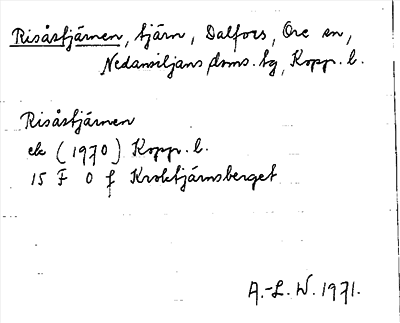 Risåstjärnen, tjärn, Dalfors, Ore sn,
Nedansiljans doms. tg, Kopp. l.
Risåstjärnen
ek (1970) Kopp. l.
15 F 0 f Kroktjärnsberget
A.-L. W. 1971.